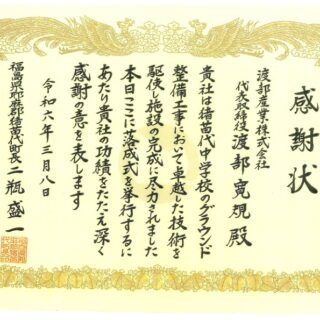 感謝状
渡部産業株式会社
代表取締役 渡部寛規殿
貴社は猪苗代中学校のグラウンド
整備工事において卓越した技術を
駆使し施設の完成に尽力されました
本日ここに落成式を挙行するに
あたり貴社の功績をたたえ深く
感謝の意を表します
令和六年三月八日
福島県耶麻郡猪苗代町長二瓶盛一